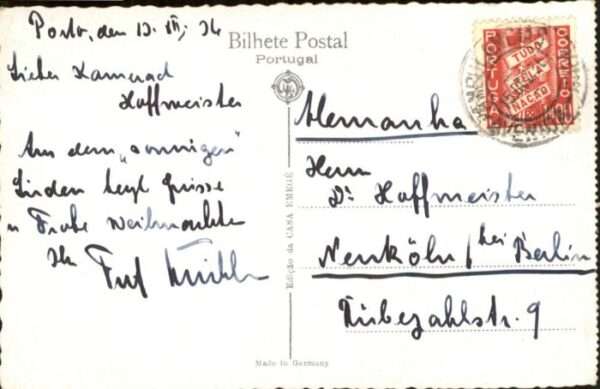 Porto, den 13. XII. 36
Bilhete Postal
Portugal
Lieber Kamerad
Hoffmeister
Aus dem „sonnigen"
Süden herzl Grüsse
u Frohe Weihnachten
Ihr
Alemanha
Herrn
Dr. Hoffmeister
Neuköln / bei Berlin
Rübezahlstr. 9
Edição da CASA EMEGÊ
Made in Germany
PORTUGAL
CORREIO
TUDO
PELA
NAÇÃO